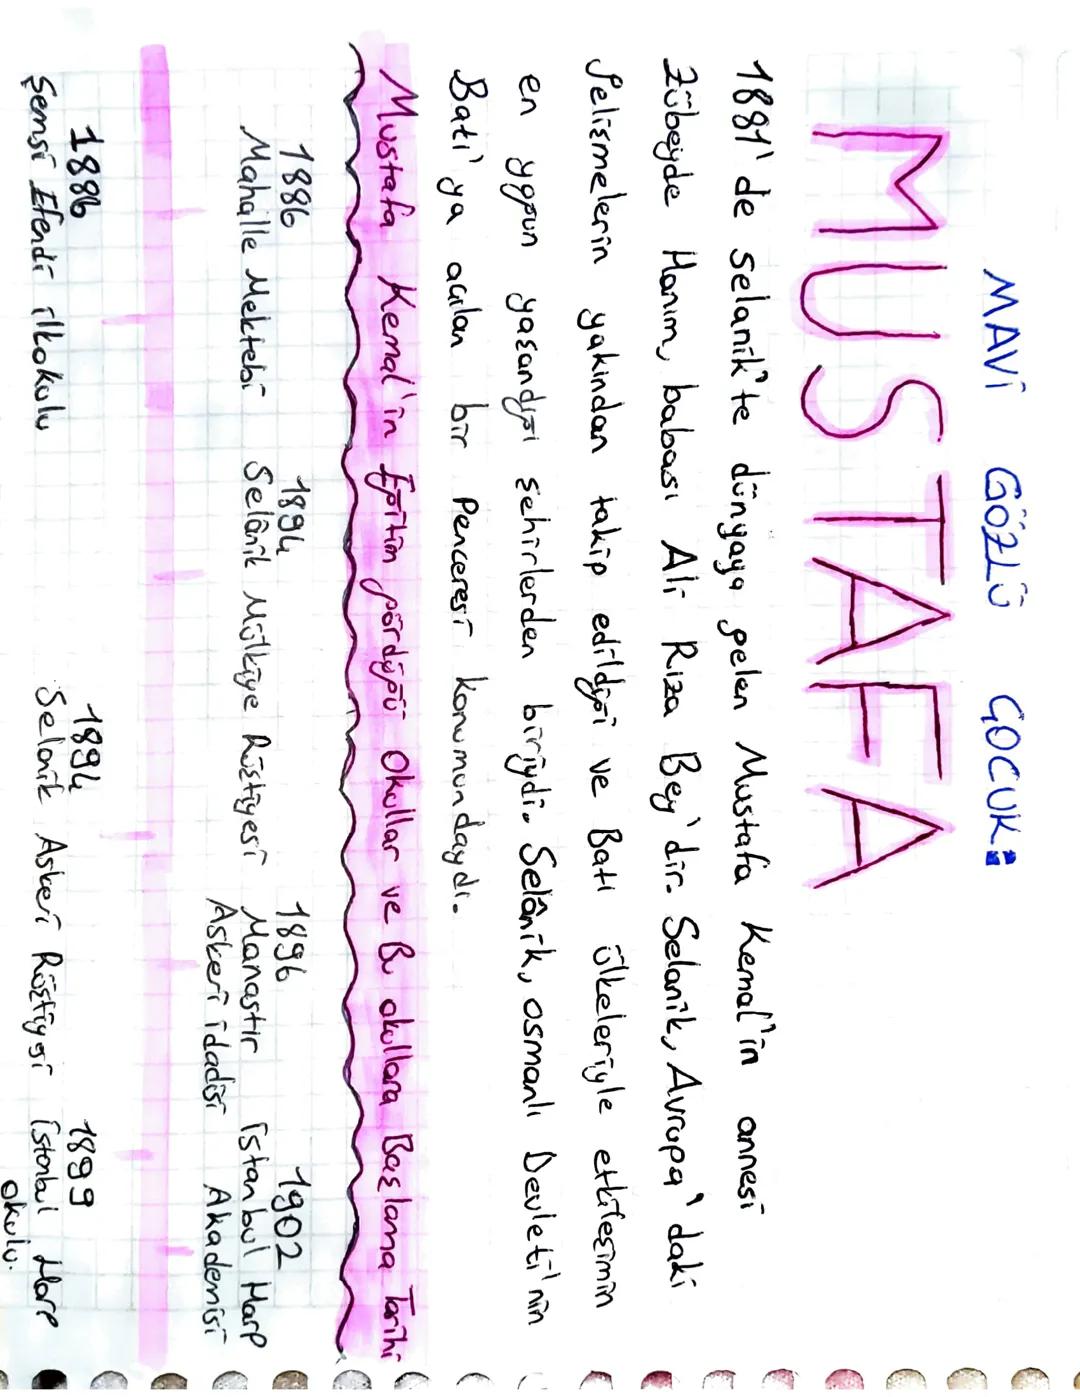 MAVİ GÖZLÜ ÇOCUK:
MUSTAFA
1881'de selanik'te dünyaya gelen Mustafa Kemal'in annesi
Zübeyde Hanım, babası Ali Rıza Bey'dir. Selanik, Avrupa'daki
gelişmelerin yakından takip edildiği ve Batı ülkeleriyle etkileşimin
en yygun yaşandığı şehirlerden biriydi. Selânik, osmanlı Devleti'nin
Batı'ya açılan bir Penceresi konumundaydı.
Mustafa Kemal'in Eğitim gördüğü Okullar ve Bu okullara Başlama Tarihi
1886 1894 1896 1902
Mahalle Mektebi Selânik Mülkiye Rüştiyesi Manastır İstanbul Harp
Askeri idadisi Akademisi
1886 1894 1899
Şemsi Efendi ilkokulu Selanik Askeri Rüştiyesi İstanbul Harp
okulu.